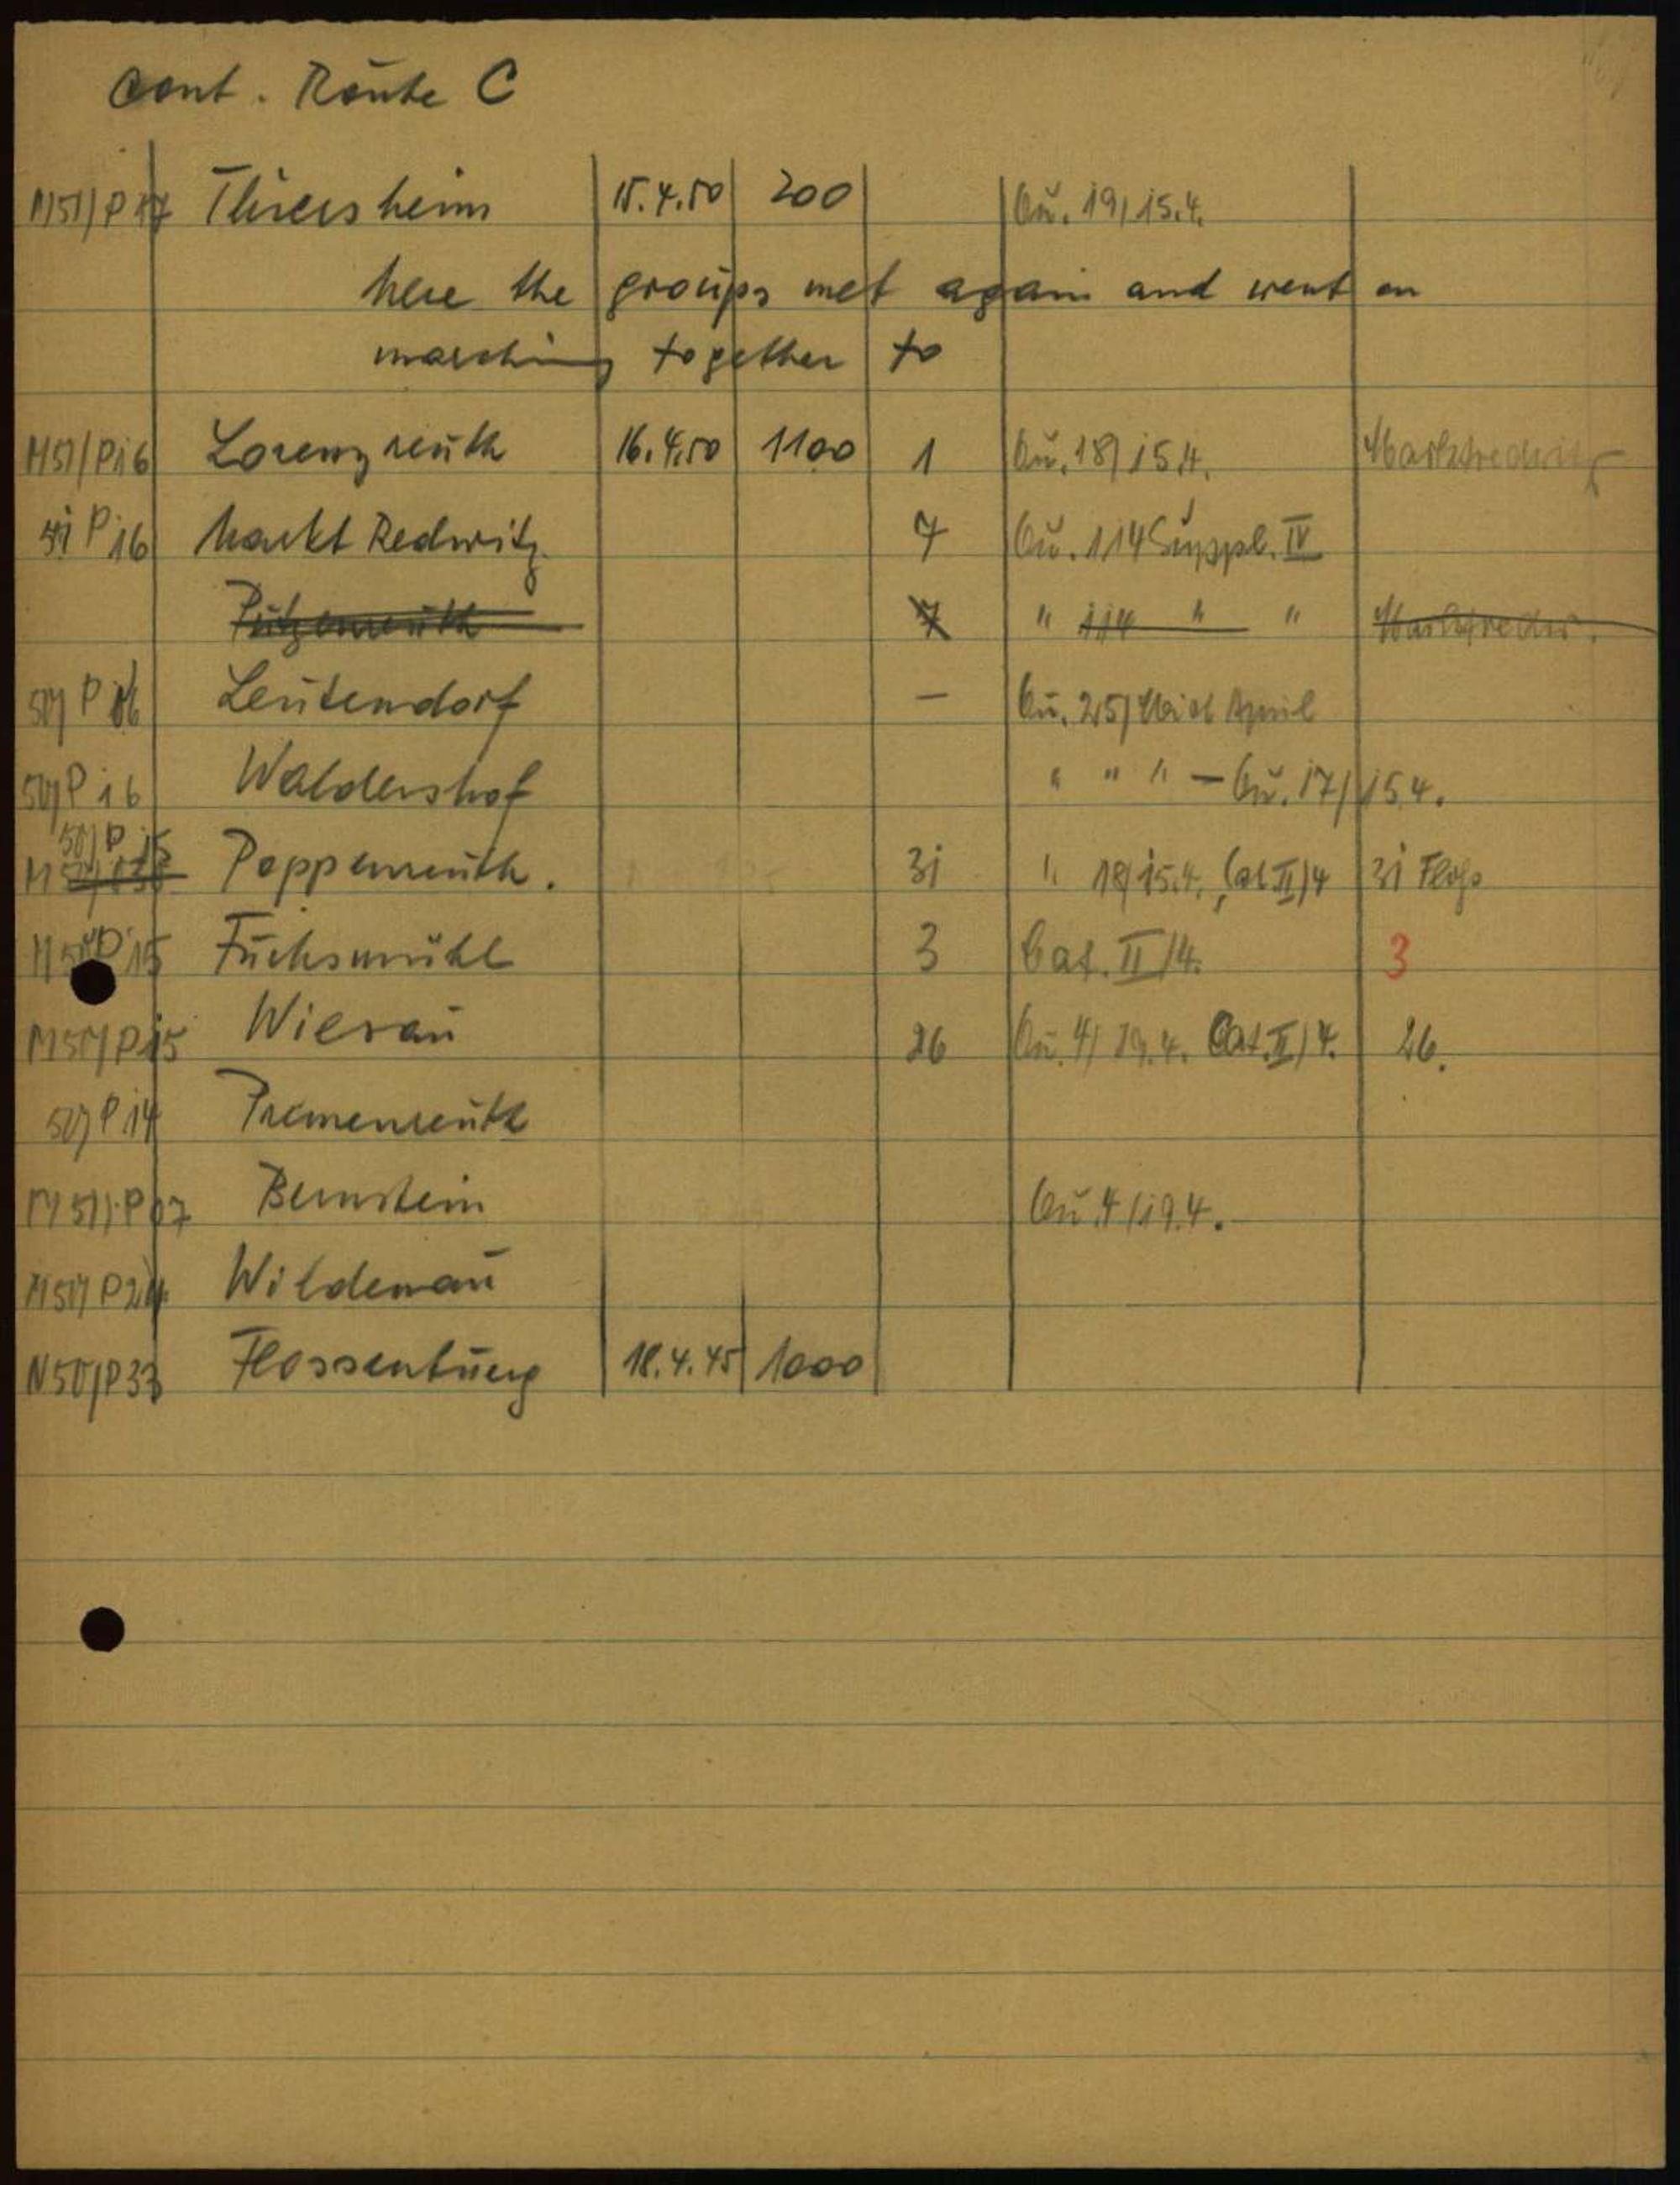 Cont. Route C
M51/P17 Thiersheim 15.4.50 200 Bü. 19/15.4.
here the groups met again and went on
marching together to
M51/P16 Lorenzreuth 16.4.50 1100 1 Bü. 18/15.4. Marktredwitz
51 P16 Markt Redwitz 7 Bü. 114 Suppl. IV
" 114 " "
50/P16 Leutendorf — Bü. 25/ April
50/P16 Waldershof " " " — Bü. 17/15.4.
50/P15
Poppenreuth. 31 " 18/15.4., Cat II/4 31 Floss
M50/P15 Fuchsmühl 3 Cat. II/4. 3
M50/P15 Wiesau 26 Bü. 4/19.4. Cat. II/4. 26.
50/P14 Premenreuth
M51/P07 Bernstein Bü 4/19.4.
M50/P24 Wildenau
N50/P33 Flossenbürg 18.4.45 1000